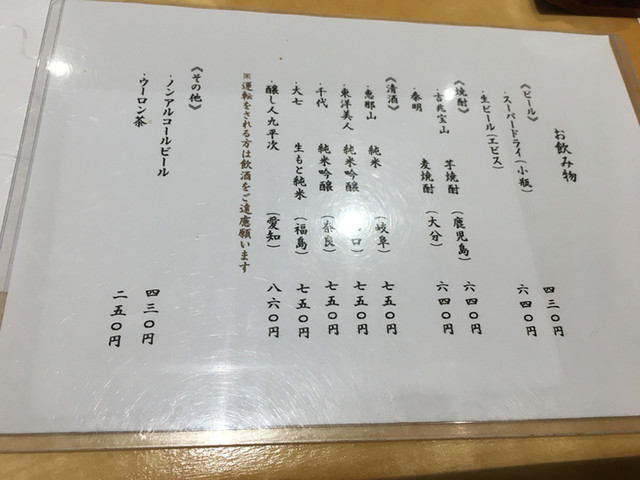 お飲み物
《ビール》
・スーパードライ(小瓶) 四三〇円
・生ビール(エビス) 六四〇円
《焼酎》
・吉兆宝山 芋焼酎 (鹿児島) 六四〇円
・泰明 麦焼酎 (大分) 六四〇円
《清酒》
・恵那山 純米 (岐阜) 七五〇円
・東洋美人 純米吟醸 口) 七五〇円
・千代 純米吟醸 (奈良) 七五〇円
・大七 生もと純米 (福島) 七五〇円
・醸し人九平次 (愛知) 八六〇円
※運転をされる方は飲酒をご遠慮願います
《その他》
・ノンアルコールビール 四三〇円
・ウーロン茶 二五〇円